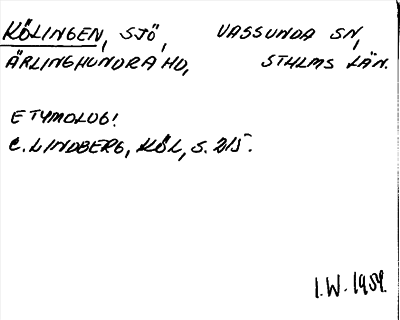 KÖLINGEN, SJÖ, VASSUNDA SN,
ÄRLINGHUNDRA HD, STHLMS LÄN.
ETYMOLOGI
C. LINDBERG, KÖL, S. 215.
I.W. 1959.